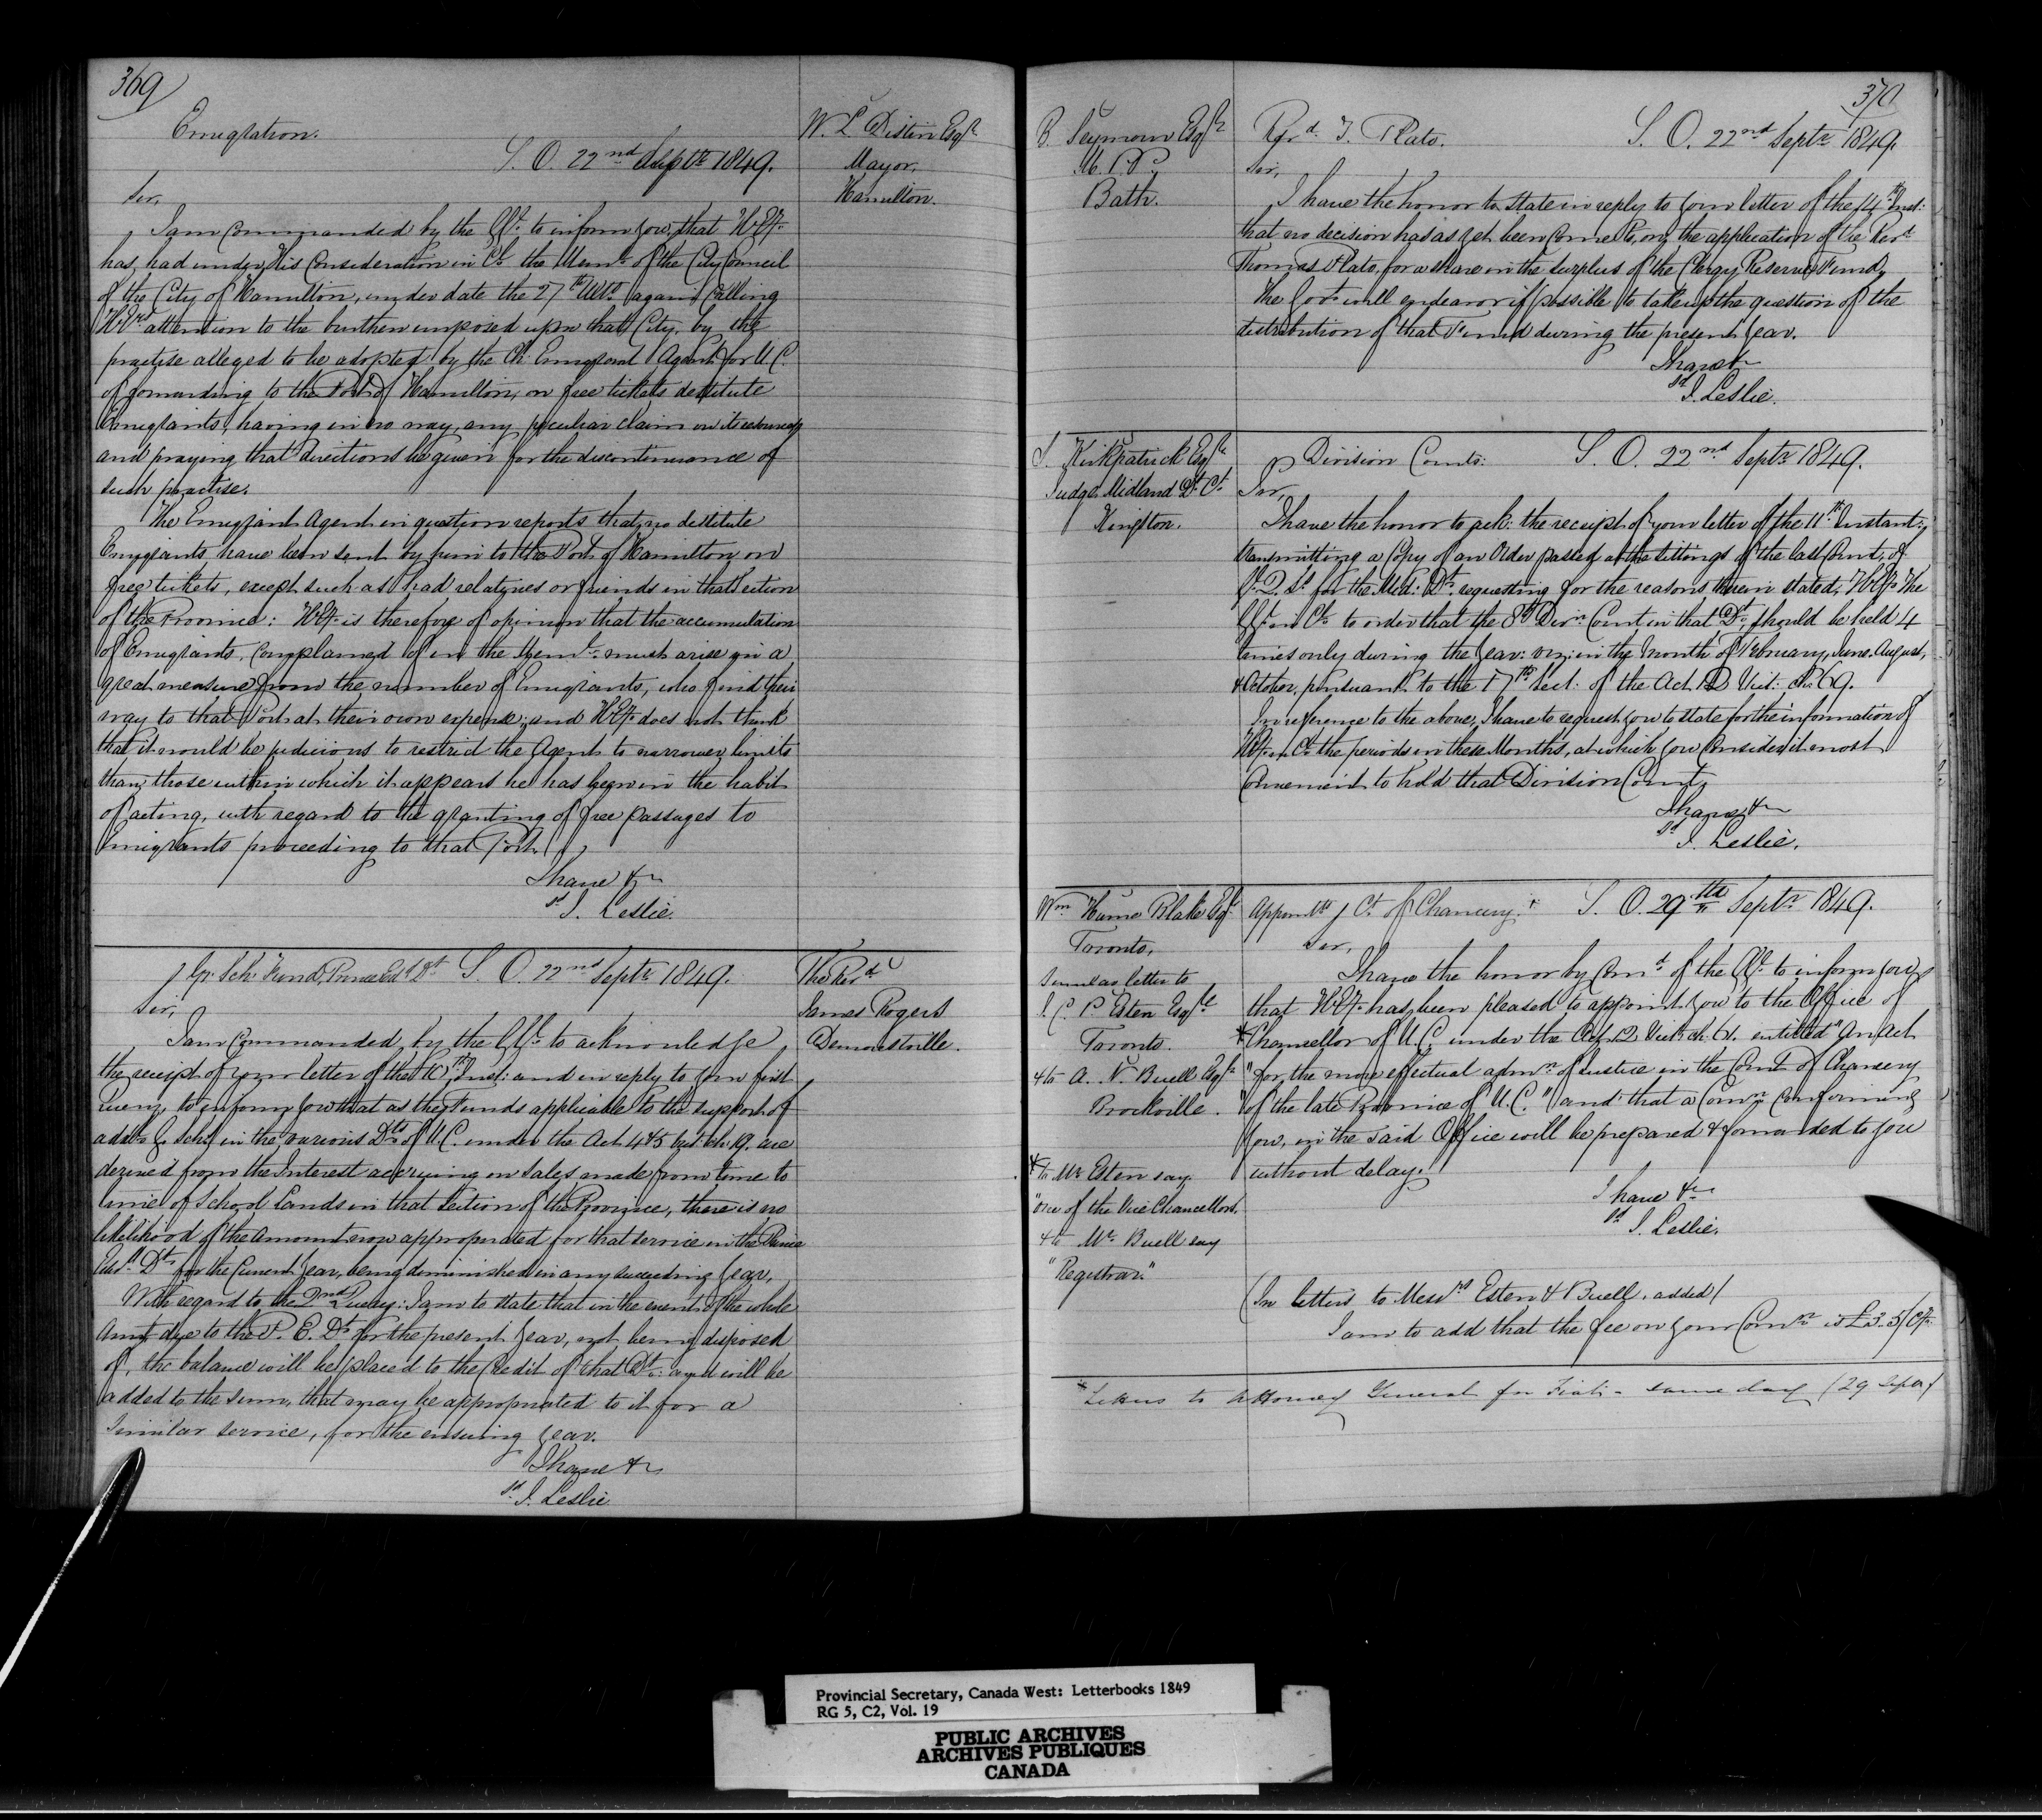 369
Emigration.
W. L. Distin Esqre
S. O. 22nd Septr 1849.
Mayor,
Hamilton.
Sir,
I am Commanded by the GGl. to inform you, that H.Ey.
has, had under His Consideration in Cl. the Meml. of the City Council
of the City of Hamilton, under date the 27th Ulto. again calling
H.Eys attention to the burthen imposed upon that City, by the
practise alleged to be adopted by the Ch: Emigrant Agent for U.C.
of forwarding to the Port of Hamilton, on free tickets destitute
Emigrants, having in no way, any peculiar claim on its resources
and praying that directions be given for the discontinuance of
such practise.
The Emigrant Agent in question reports that, no destitute
Emigrants have been sent by him to the Port of Hamilton on
free tickets, except such as had relatives or friends in that section
of the Province: H.Ey. is therefore of opinion that the accumulation
of Emigrants, complained of in the Meml. must arise in a
great measure from the number of Emigrants, who find their
way to that Port at their own expense; and H.Ey. does not think
that it would be judicious to restrict the Agent to narrower limits
than those within which it appears he has been in the habit
of acting, with regard to the granting of free passages to
Emigrants proceeding to that Port.
I have &c
sd. J. Leslie.
Gr. Sch. Fund, Prince Edd Dt. S. O. 22nd Septr 1849.
The Revd.
James Rogers
Demorestville.
Sir,
I am Commanded, by the GGl. to acknowledge
the receipt of your letter of the 10th Inst: and in reply to your first
Query, to inform you that as the Funds applicable to the support of
addl. G. Schs. in the various Dts of U.C. under the Act 4 & 5 Vict: Ch. 19. are
derived from the Interest accruing on Sales made from time to
time of School Lands in that Section of the Province, there is no
likelihood of the Amount now appropriated for that service in the Prince
Edd. Dt. for the Current Year, being diminished in any succeeding Year.
With regard to the 2nd Query: I am to state that in the event of the whole
Amt. due to the P. E. Dt. for the present Year, not being disposed
of, the balance will be placed to the Credit of that Dt: and will be
added to the sum, that may be appropriated to it for a
similar service, for the ensuing Year.
I have &c
sd. J. Leslie
370
B. Seymour Esqre
M. P. P.
Bath.
Revd. T. Plato.
S. O. 22nd Septr 1849.
Sir,
I have the honor to state in reply to your letter of the 14th Inst:
that no decision has as yet been come to, on the application of the Revd.
Thomas Plato, for a share in the surplus of the Clergy Reserves Fund,
The Govt. will endeavor if possible to take up the question of the
distribution of that Fund during the present Year.
I have &c
sd J. Leslie.
S. Kirkpatrick Esqre
Judge, Midland Dt. Ct.
Kingston.
Division Courts:
S. O. 22nd Septr 1849.
Sir,
I have the honor to ack: the receipt of your letter of the 11th. Instant:,
transmitting a Copy of an Order passed at the Sittings of the last Court of
G. Q. Ss. for the Mid: Dt., requesting for the reasons therein stated, H.Ey. the
GGl. in Cl. to order that the 8th Divn. Court in that Dt. should be held 4
times only during the Year: viz: in the Month of February, June, August,
& October, pursuant to the 17th Sect: of the Act 12 Vict: Ch: 69.
In reference to the above, I have to request you to state for the information of
H.Ey. in Cl. the periods in these Months, at which you consider it most
Convenient to hold that Division Court,
I have &c
sd J. Leslie.
Wm Hume Blake Esqr.
Toronto,
Similar letter to
J. C. P. Esten Esqre
Toronto.
& to A. N. Buell Esqre
Brockville.
* to Mr Esten say.
"one of the Vice Chancellors.
& to Mr. Buell say
"Registrar."
Appointts Ct. of Chancery. *
S. O. 29th Septr 1849.
Sir,
I have the honor by Comd. of the GGl. to inform you
that H.Ey. has been pleased to appoint you to the Office of
*Chancellor of U.C. under the Act 12 Vict: ch: 64. entitled "An Act
"for the more effectual admn. of Justice in the Court of Chancery
"of the late Province of U.C." and that a Comn. Confirming
you, in the said Office will be prepared & forwarded to you
without delay.
I have &c
sd J. Leslie.
(In letters to Messrs Esten & Buell. added)
I am to add that the fee on your Comn. is £3.5/Cy.
* Letters to Attorney General for Fiat. - same day (29 Septr)
Provincial Secretary, Canada West: Letterbooks 1849
RG 5, C2, Vol. 19
PUBLIC ARCHIVES
ARCHIVES PUBLIQUES
CANADA